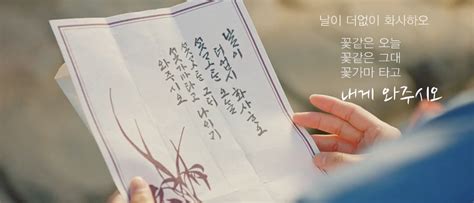 날이 더없이 화사하오
꽃같은 오늘
꽃같은 그대
꽃가마 타고
내게 와주시오
날이
더없이 화사하오
꽃같은 오늘
꽃같은 그대
꽃가마타고
와주시오